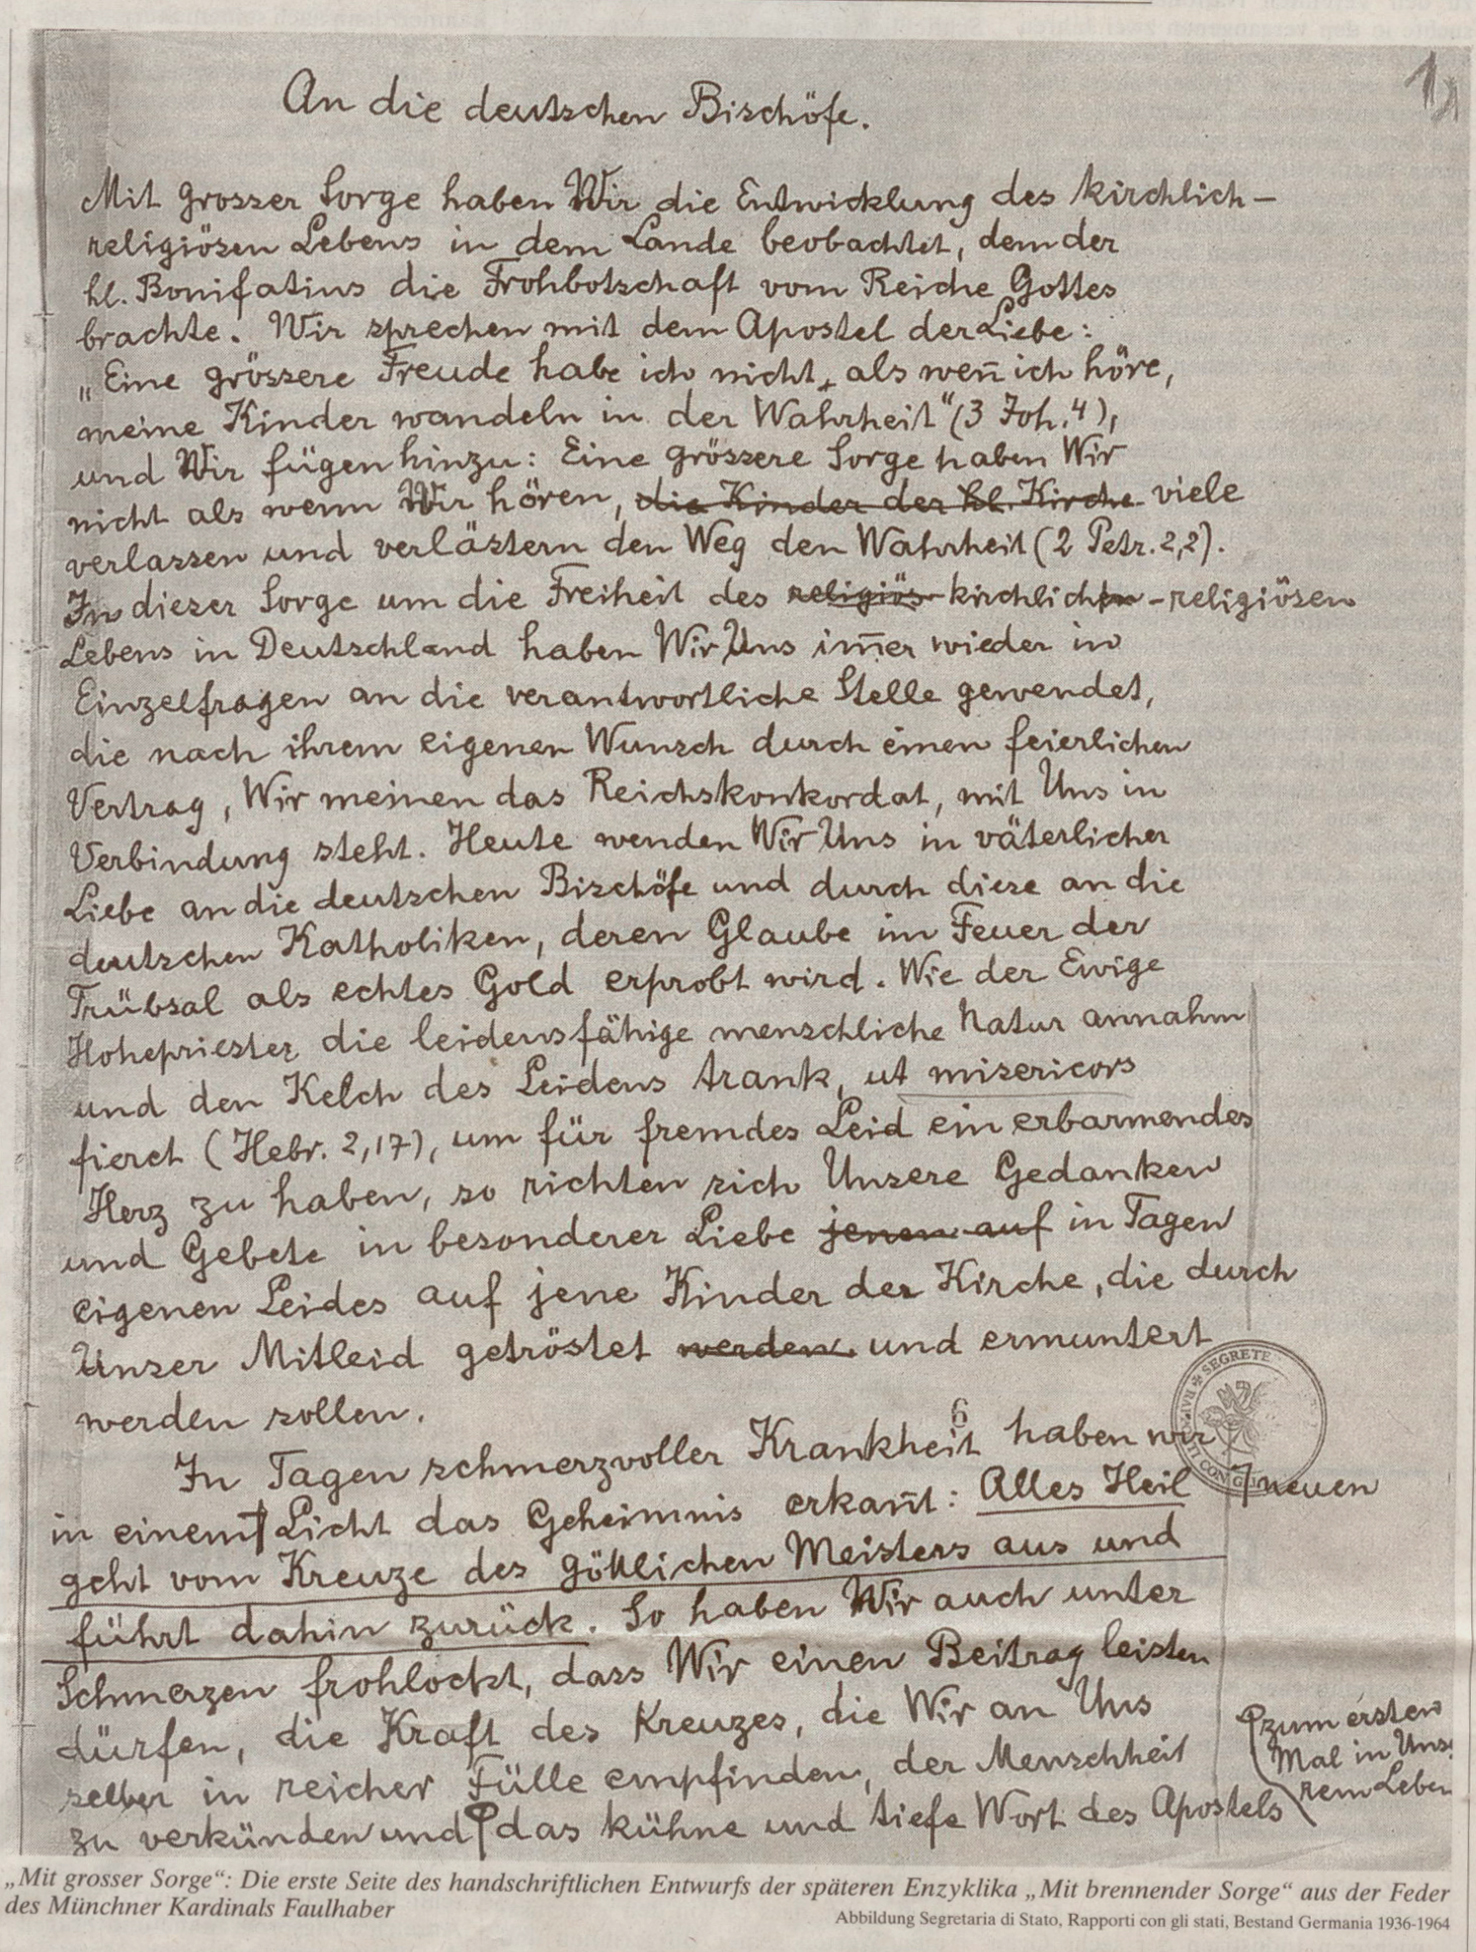 1)
An die deutschen Bischöfe.
Mit grosser Sorge haben Wir die Entwicklung des kirchlich-
religiösen Lebens in dem Lande beobachtet, dem der
hl. Bonifatius die Frohbotschaft vom Reiche Gottes
brachte. Wir sprechen mit dem Apostel der Liebe:
„Eine grössere Freude habe ich nicht, als weñ ich höre,
meine Kinder wandeln in der Wahrheit“ (3 Joh. 4),
und Wir fügen hinzu: Eine grössere Sorge haben Wir
nicht als wenn Wir hören, die Kinder der hl. Kirche viele
verlassen und verlästern den Weg den Wahrheit (2 Petr. 2,2).
In dieser Sorge um die Freiheit des religiös- kirchlichen -religiösen
Lebens in Deutschland haben Wir Uns im̄er wieder in
Einzelfragen an die verantwortliche Stelle gewendet,
die nach ihrem eigenen Wunsch durch einen feierlichen
Vertrag, Wir meinen das Reichskonkordat, mit Uns in
Verbindung steht. Heute wenden Wir Uns in väterlicher
Liebe an die deutschen Bischöfe und durch diese an die
deutschen Katholiken, deren Glaube im Feuer der
Trübsal als echtes Gold erprobt wird. Wie der Ewige
Hohepriester die leidensfähige menschliche Natur annahm
und den Kelch des Leidens trank, ut misericors
fieret (Hebr. 2,17), um für fremdes Leid ein erbarmendes
Herz zu haben, so richten sich Unsere Gedanken
und Gebete in besonderer Liebe jenen auf in Tagen
eigenen Leides auf jene Kinder der Kirche, die durch
Unser Mitleid getröstet werden und ermuntert
werden sollen.
SEGRETE
CON GLI
6
In Tagen schmerzvoller Krankheit haben wir
in einem Licht das Geheimnis erkañt: Alles Heil
neuen
geht vom Kreuze des göttlichen Meisters aus und
führt dahin zurück. So haben Wir auch unter
Schmerzen frohlockt, dass Wir einen Beitrag leisten
dürfen, die Kraft des Kreuzes, die Wir an Uns
selber in reicher Fülle empfinden, der Menschheit
zu verkünden und das kühne und tiefe Wort des Apostels
zum ersten
Mal in Unse
rem Leben
„Mit grosser Sorge“: Die erste Seite des handschriftlichen Entwurfs der späteren Enzyklika „Mit brennender Sorge“ aus der Feder
des Münchner Kardinals Faulhaber
Abbildung Segretaria di Stato, Rapporti con gli stati, Bestand Germania 1936-1964